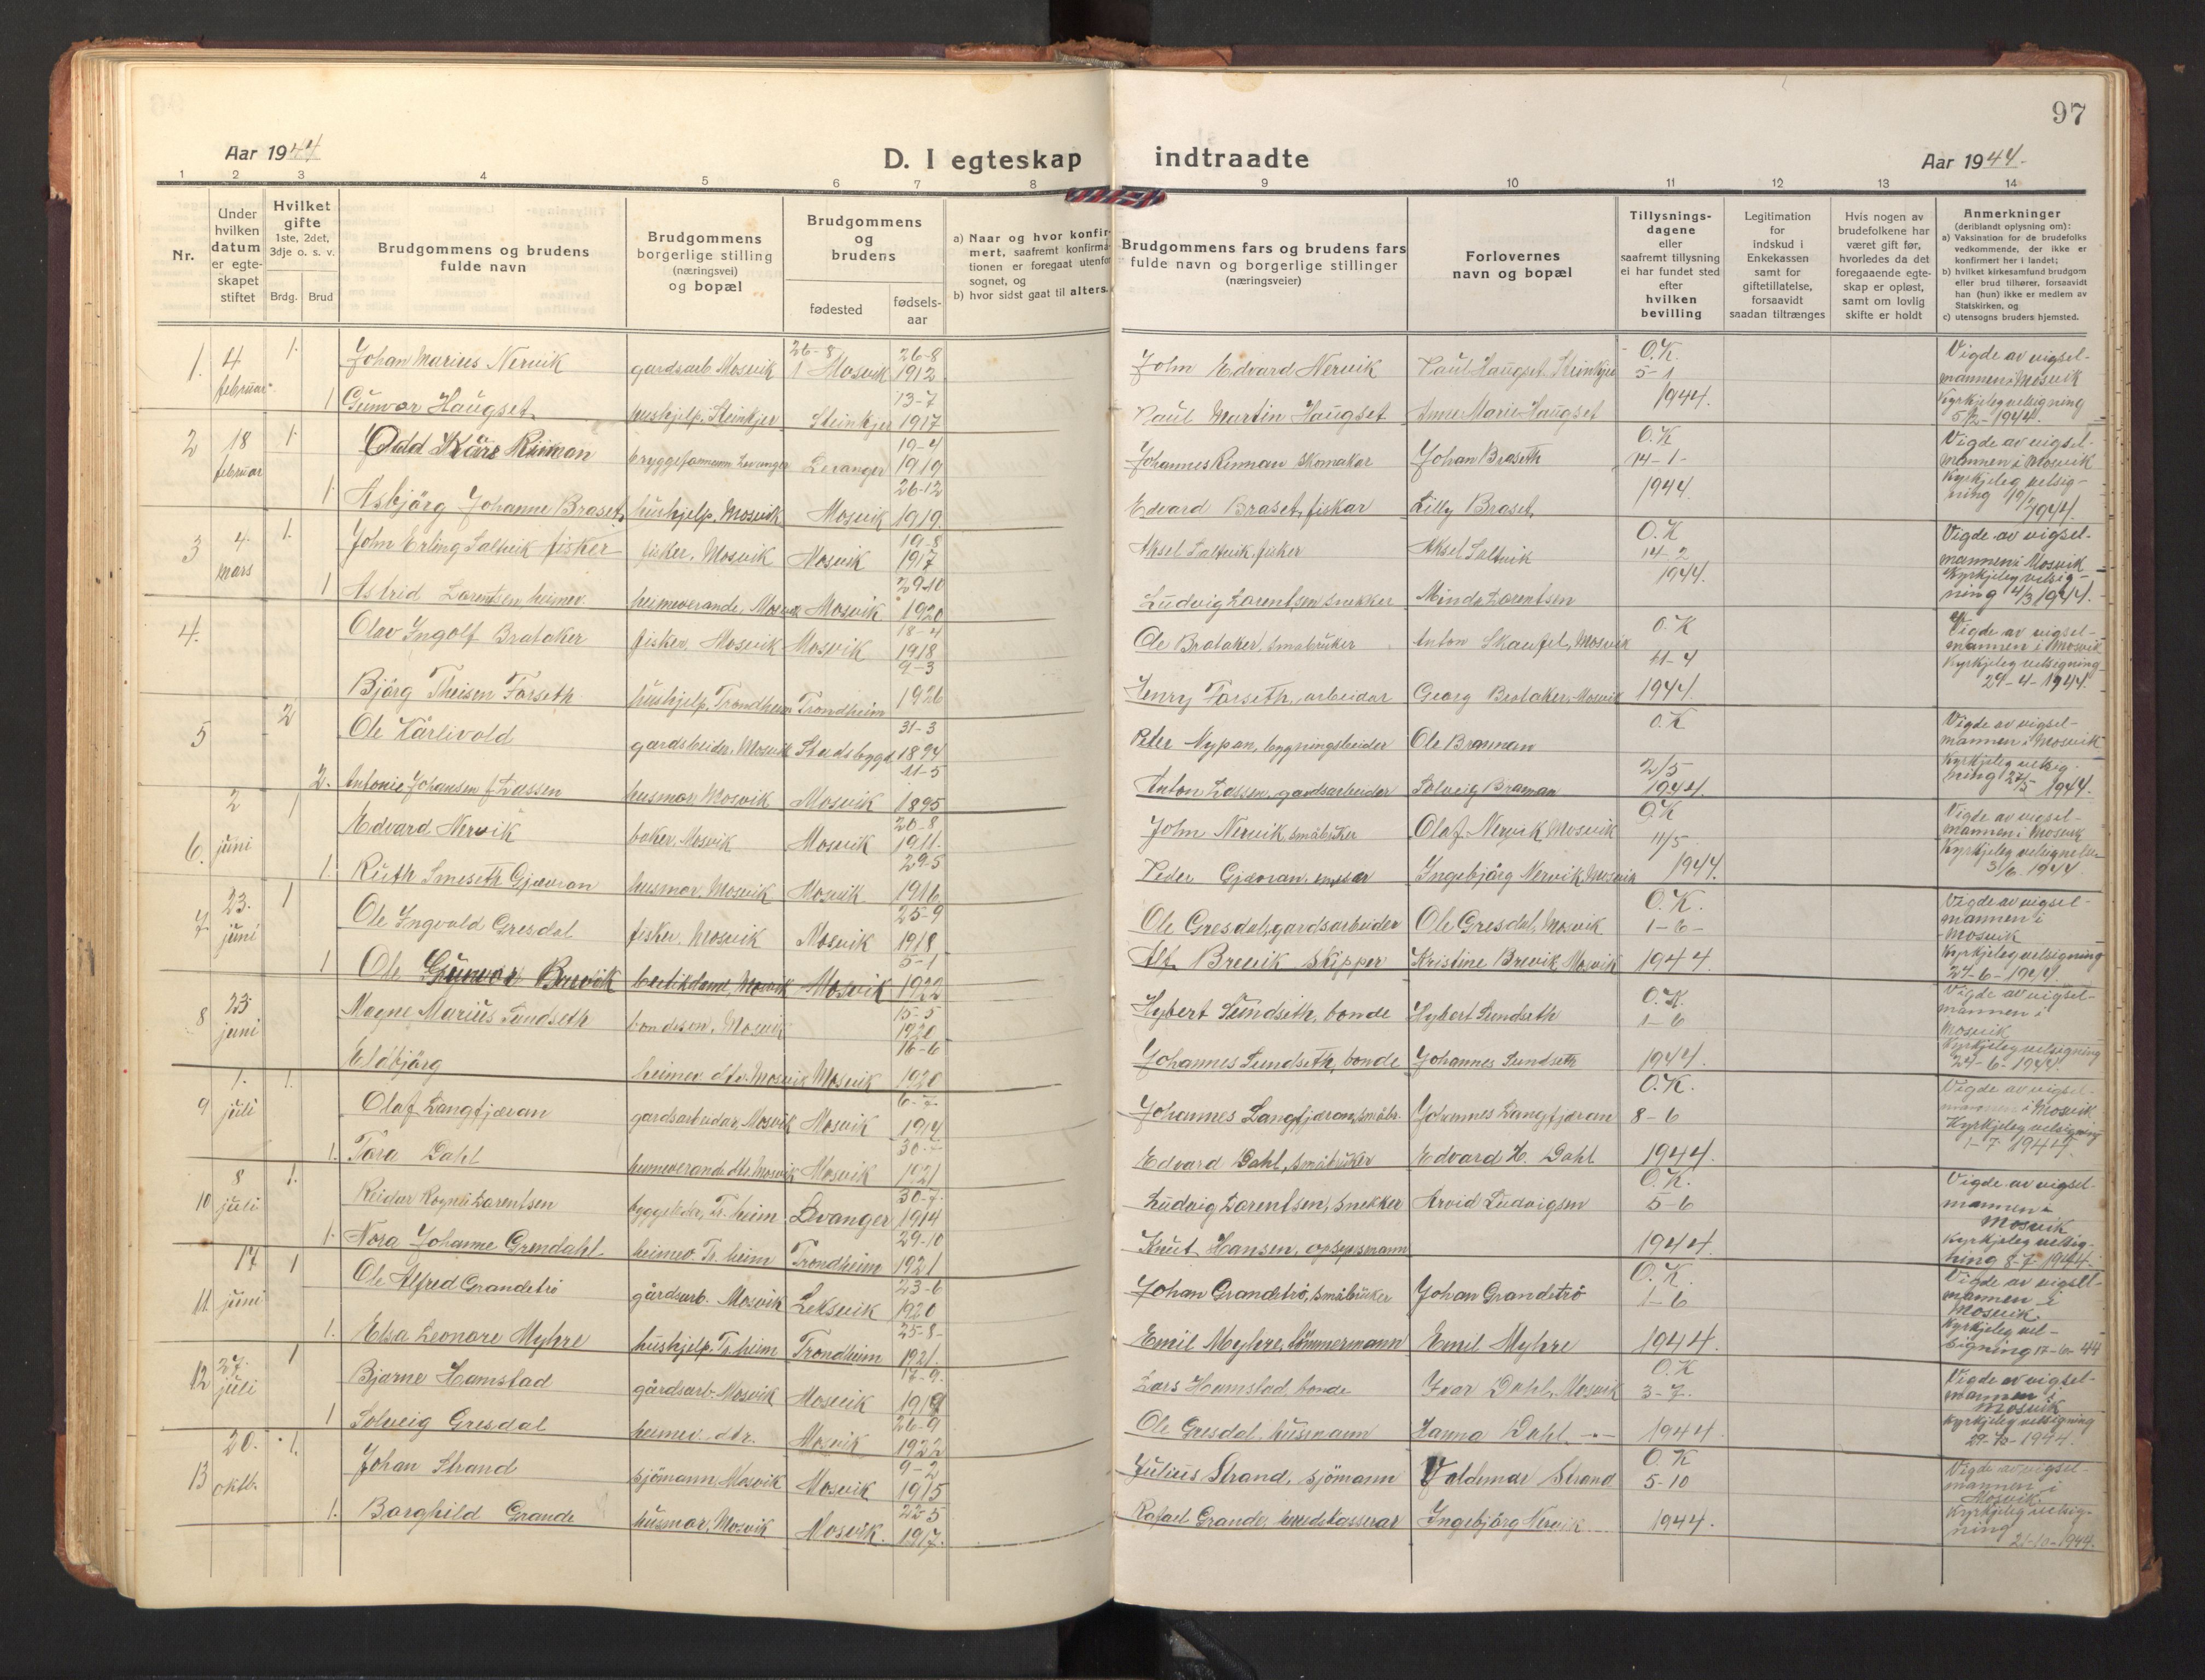 97
Aar 1944
D. I egteskap indtraadte
Aar 1944.
1 2 3 4 5 6 7 8 9 10 11 12 13 14
Nr.
Under hvilken datum er egteskapet stiftet
Hvilket gifte
1ste, 2det, 3dje o. s. v.
Brdg. Brud
Brudgommens og brudens fulde navn
Brudgommens borgerlige stilling (næringsvei) og bopæl
Brudgommens og brudens
fødested
fødsels-aar
a) Naar og hvor konfir-
mert, saafremt konfirma-
tionen er foregaat utenfor
sognet, og
b) hvor sidst gaat til alters.
Brudgommens fars og brudens fars
fulde navn og borgerlige stillinger
(næringsveier)
Forlovernes
navn og bopæl
Tillysnings-
dagene
eller
saafremt tillysning
ei har fundet sted
efter
hvilken
bevilling
Legitimation
for
indskud i
Enkekassen
samt for
giftetillatelse,
forsaavidt
saadan tiltrænges
Hvis nogen av
brudefolkene har
været gift før,
hvorledes da det
foregaaende egte-
skap er opløst,
samt om lovlig
skifte er holdt
Anmerkninger
(deriblandt oplysning om):
a) Vaksination for de brudefolks
vedkommende, der ikke er
konfirmert her i landet;
b) hvilket kirkesamfund brudgom
eller brud tilhører, forsaavidt
han (hun) ikke er medlem av
Statskirken, og
c) utensogns bruders hjemsted.
1. 4 februar 1. Johan Marius Nervik gardsarb Mosvik 26-8 Mosvik 26-8 1912 John Edvard Nervik Paul Haugset, Steinkjer O.K. 5-1 1944. Vigde av vigsel-mannen i Mosvik
1 Gunvor Haugset hushjelp, Steinkjer Steinkjer 13-7 1917 Paul Martin Haugset Anne Marie Haugset Kyrkjeleg velsigning 5/2-1944.
2 18 februar 1. Odd Kåre Rinnan bryggeformann Levanger Levanger 19-4 1919 Johannes Rinnan skomakar Johan Braseth O.K 14-1- 1944 Vigde av vigsel-mannen i Mosvik
1. Asbjörg Johanne Braset hushjelp, Mosvik Mosvik 26-12 1919. Edvard Braset, fiskar Lilly Braset Kyrkjeleg velsig-ning 19/2 1944.
3 4. mars 1. John Erling Saltvik fisker fisker, Mosvik Mosvik 19-8 1917 Aksel Saltvik, fisker Aksel Saltvik O.K 14-2 1944. Vigde av vigsel-mannen i Mosvik
1 Astrid Larentsen heimev. heimeverande, Mosvik Mosvik 29-10 1920 Ludvig Larentsen snekker Minda Larentsen Kyrkjeleg velsig-ning 4/3 1944.
4. Olav Ingolf Brataker fisker, Mosvik Mosvik 18-4 1918 Ole Brataker, småbruker Anton Skaufel, Mosvik O.K 11-4 1944. Vigde av vigsel-mannen i Mosvik
Bjärg Theisen Forseth hushjelp, Trondheim Trondheim 9-3 1926 Henry Forseth, arbeidar Georg Brataker, Mosvik Kyrkjeleg velsigning 29-4-1944.
5 2 Ole Kårlivold gardsbeider, Mosvik Stadsbygd 31-3 1894 Peter Nypan, bygningsbeider Ole Braman O.K 2/5 1944. Vigde av vigsel-mannen i Mosvik
2. Antonie Johansen f Lassen husmor Mosvik Mosvik 11-5 1895 Anton Lassen, gardsarbeider Solveig Braman Kyrkjeleg velsig-ning 27/5 1944.
6. 2 juni 1 Edvard Nervik baker, Mosvik Mosvik 20-8 1911. John Nervik småbruker Olaf Nervik Mosvik O.K 11/5 1944. Vigde av vigsel-mannen i Mosvik
1. Ruth Smeseth Gjævran husmor, Mosvik Mosvik 29-5 1916 Peder Gjævran Ingebjörg Nervik, Mosvik 3/6 1944
7 23. juni 1 Ole Ingvald Gresdal fisker, Mosvik Mosvik 25-9 1918 Ole Gresdal, gardsarbeider Ole Gresdal, Mosvik O.K. 1-6- 1944 Vigde av vigsel-mannen i Mosvik
1 Gunvor Brevik butikdame, Mosvik Mosvik 5-1 1922 Alf Brevik skipper Kristine Brevik, Mosvik Kyrkjeleg velsigning 24-6-1944.
8 23 juni Magne Marius Sundseth bondeson, Mosvik 15-5 1920 Hybert Sundseth, bonde Hybert Sundseth O.K. 1-6 1944. Vigde av vigsel-mannen i Mosvik
Eldbjärg heimev. dtr. Mosvik Mosvik 16-6 1920 Johannes Sundseth, bonde Johannes Sundseth Kyrkjeleg velsigning 24-6-1944.
9 1. juli 1. Olaf Langfjæran gardsarbeidar, Mosvik Mosvik 6-7- 1914 Johannes Langfjæran, småbr. Johannes Langfjæran O.K. 8-6 1944. Vigde av vigsel-mannen i Mosvik
1. Tora Dahl heimeverande dtr. Mosvik Mosvik 30-7- 1921 Edvard Dahl, småbruker Edvard H. Dahl Kyrkjeleg velsigning 1-7-1944.
10 8 juli 1. Reidar Rogne Larentsen byggeleder, Tr.heim Levanger 30-7- 1914 Ludvig Larentsen, snekker Arvid Ludvigsen O.K. 5-6 1944. Vigde av vigsel-mannen i Mosvik
1. Nora Johanne Grendahl heimev. Tr. heim Trondheim 29-10 1921 Knut Hansen, opsynsmann Kyrkjeleg velsig-ning 8-7-1944.
11 17 juni 1 Ole Alfred Grandetrö gårdsarb. Mosvik Leksvik 23-6 1920 Johan Grandetrö, småbruker Johan Grandetrö O.K. 1-6 1944. Vigde av vigsel-mannen i Mosvik.
1. Elsa Leonore Myhre hushjelp, Tr.heim Trondheim 25-8- 1921. Emil Myhre, tömmermann Emil Myhre Kyrkjeleg vel-signing 17-6-44
12 27. juli 1 Bjarne Hamstad gårdsarb. Mosvik Mosvik 17-9. 1919 Lars Hamstad bonde Ivar Dahl, Mosvik O.K 3-7. 1944 Vigde av vigsel-mannen i Mosvik
1 Solveig Gresdal heimev. dtr. Mosvik 26-9 1922 Ole Gresdal, husmann Hanna Dahl -"- Kyrkjeleg velsigning 29-7-1944.
13 20. oktb. 1. Johan Strand sjömann, Mosvik Mosvik 9-2 1915 Julius Strand, sjömann Valdemar Strand O.K 5-10 1944. Vigde av vigsel-mannen i Mosvik.
1. Borghild Grande husmor, Mosvik Mosvik. 22-5 1917. Rafael Grande, heredskasserar Ingebjörg Nervik Kyrkjeleg velsig-ning 21-10-1944.